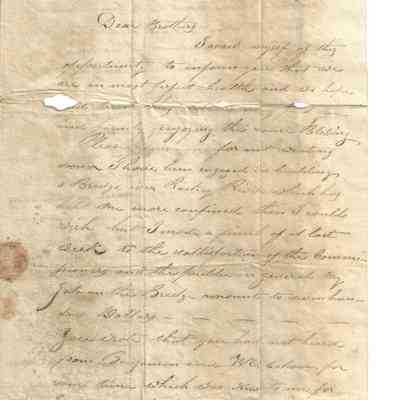 Dear Brother,
I avail myself of this
opportunity to inform you that we
are in most perfect health and we hope
enjoying the same Blessing
Please for not writing
sooner I have been engaged in building
a Bridge over Rocky River which has
me more confined than I could
wish but I made a finish of it last
week to the satisfaction of the Commis
sioners and the public in general My
Job on the Bridge amounts to
Dollars
that you had not heard
from Benjamin and Wm for
some time which was new to me for